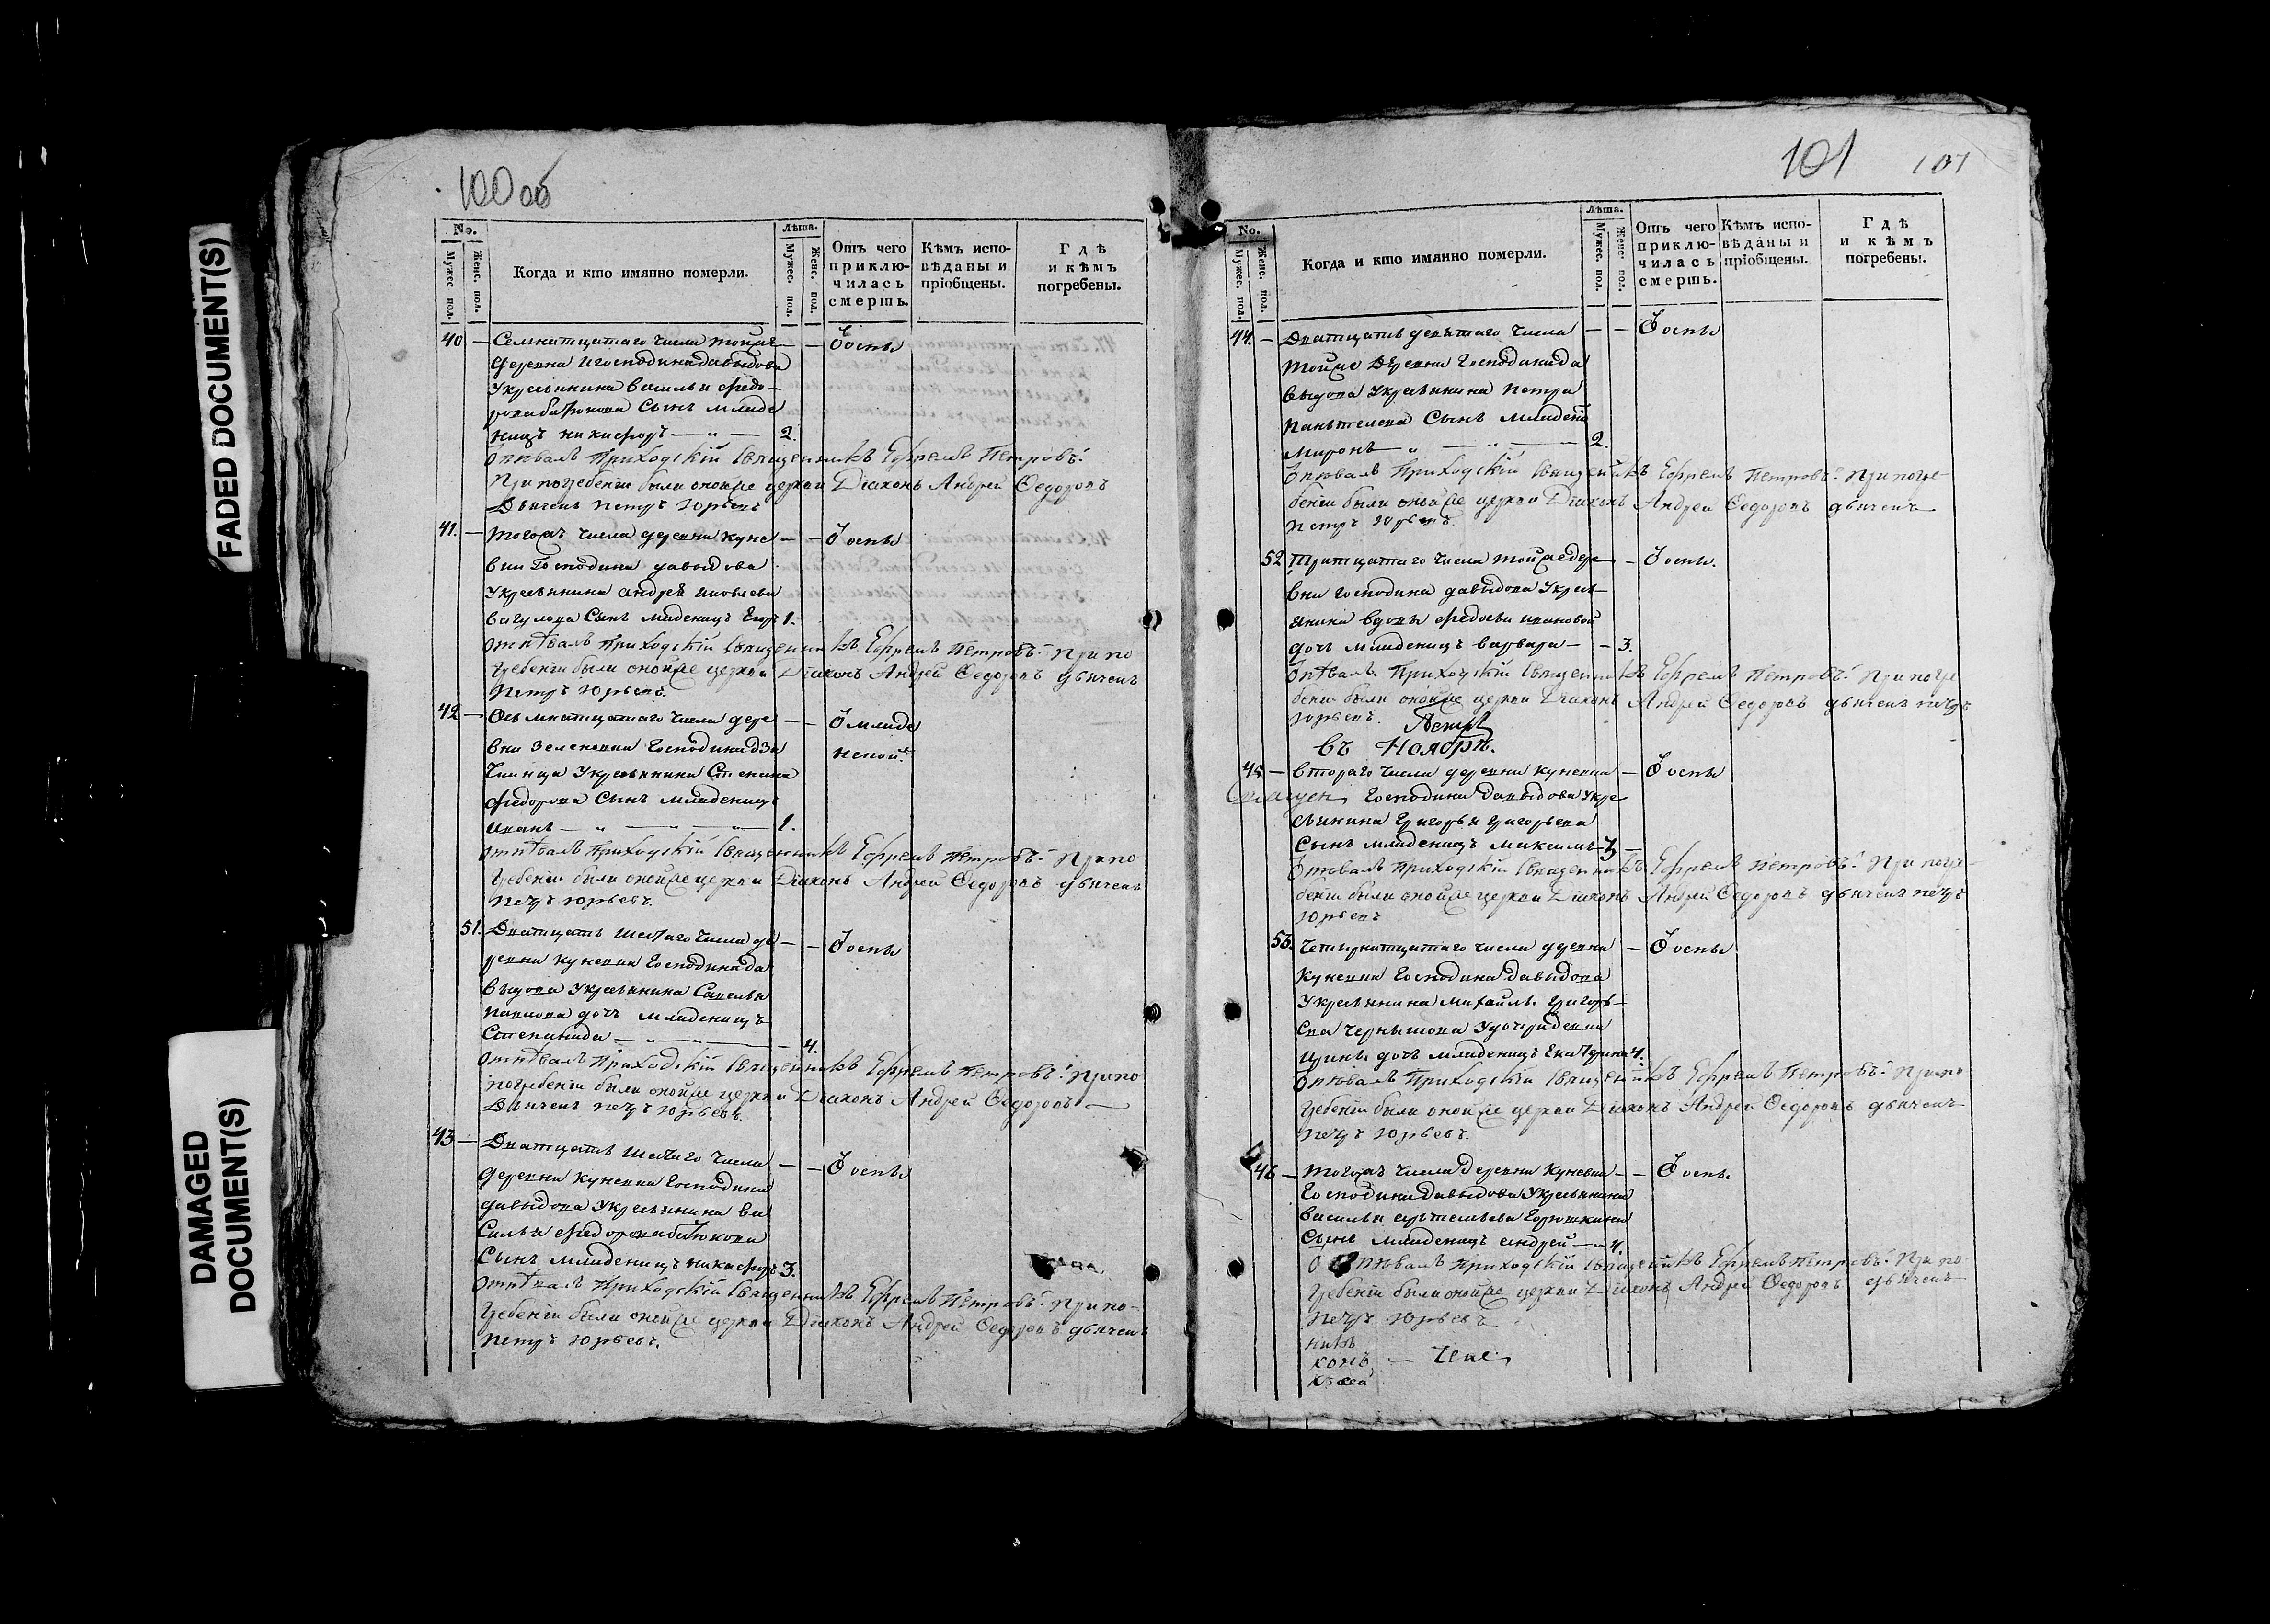 FADED DOCUMENT(S)
DAMAGED
DOCUMENT(S)
100 об
No.
Мужес. пол.
Женс. пол.
Когда и кто имянно померли.
Лѣта.
Мужес. пол.
Женс. пол.
Отъ чего
приклю-
чилась
смерть.
Кѣмъ испо-
вѣданы и
пріобщены.
Гдѣ
и кѣмъ
погребены.
40 — Семнатцатаго числа тойже — — Ѿ оспы
деревни и господина давыдова
Укресьянина василья федо-
рова бирюкова Сынъ младе
нецъ никифоръ — „ — 2.
Ѿпѣвалъ Приходскій священникъ Ефремъ Петровъ.
При погребеніи были оной же церкви Діаконъ Андрей Ѳедоровъ
Дьячекъ Петръ Юрьевъ
41. — Тогожъ числа деревни куне — — Ѿ оспы
вки Господина давыдова
Укресьянина андрея яковлева
Сынъ младенецъ Егоръ 1.
Отпѣвалъ Приходскій священникъ Ефремъ Петровъ. При по
гребеніи были оной же церкви Діаконъ Андрей Ѳедоровъ дьячекъ
Петръ Юрьевъ.
42 — Осьмнатцатаго числа дере — — Ѿ младе
вни Господина
неской
Укресьянина
федорова Сынъ младенецъ
иванъ — „ — „ — „ — 1.
Отпѣвалъ Приходскій священникъ Ефремъ Петровъ. При по
гребеніи были оной же церкви Діаконъ Андрей Ѳедоровъ дьячекъ
Петръ Юрьевъ.
51. Дватцать шестаго числа де — — Ѿ оспы
ревни куневки Господина да
выдова Укресьянина Савелья
павлова дочь младенецъ
Степанида — „ — 4.
Отпѣвалъ Приходскій священникъ Ефремъ Петровъ. При по
погребеніи были оной же церкви Діаконъ Андрей Ѳедоровъ —
Дьячекъ Петръ Юрьевъ.
43 — Дватцать шестаго числа — — Ѿ оспы
деревни куневки Господина
давыдова Укресьянина ва
силья федорова бирюкова
Сынъ младенецъ никифоръ 3.
Отпѣвалъ Приходскій священникъ Ефремъ Петровъ. При по-
гребеніи были оной же церкви Діаконъ Андрей Ѳедоровъ дьячекъ
Петръ Юрьевъ.
101 101
No.
Мужес. пол.
Женс. пол.
Когда и кто имянно померли.
Лѣта.
Мужес. пол.
Женс. пол.
Отъ чего
приклю-
чилась
смерть.
Кѣмъ испо-
вѣданы и
пріобщены.
Гдѣ
и кѣмъ
погребены.
44. — Дватцать девятаго числа — — Ѿ оспы
тойже Деревни Господина да
выдова Укресьянина Петра
пантелева Сынъ младенецъ
миронъ — „ — „ — 2.
Ѿпѣвалъ Приходскій священникъ Ефремъ Петровъ. При погре-
беніи были оной же церкви Діаконъ Андрей Ѳедоровъ дьячекъ
Петръ Юрьевъ.
52 Тритцатаго числа тойже дере — Ѿ оспы.
вни Господина давыдова Укресь-
янки вдовы федосьи ивановой
дочь младенецъ варвара — — 3.
Ѿпѣвалъ Приходскій священникъ Ефремъ Петровъ. При погре
беніи были оной же церкви Діаконъ Андрей Ѳедоровъ дьячекъ Петръ
Юрьевъ.
въ Ноябрѣ.
45 — втораго числа деревни куневки — Ѿ оспы
Господина Давыдова Укре
сьянина Григорья Григорьева
Сынъ младенецъ максимъ 3 —
Ѿпѣвалъ Приходскій священникъ Ефремъ Петровъ. При погре-
беніи были оной же церкви Діаконъ Андрей Ѳедоровъ дьячекъ Петръ
Юрьевъ
53. Четырнатцатаго числа деревни — Ѿ оспы
куневки Господина Давыдова
Укресьянина михайлы Григорь-
ева чернышова
дочь младенецъ Екатерина 4.
Ѿпѣвалъ Приходскій священникъ Ефремъ Петровъ. При по
гребеніи были оной же церкви Діаконъ Андрей Ѳедоровъ дьячекъ
Петръ Юрьевъ.
46 — Тогожъ числа Деревни Куневки — — Ѿ оспы.
Господина Давыдова Укресьянина
василья
Сынъ младенецъ андрей — 4.
Ѿпѣвалъ Приходскій священникъ Ефремъ Петровъ. При по-
гребеніи были оной же церкви Діаконъ Андрей Ѳедоровъ дьячекъ
Петръ Юрьевъ